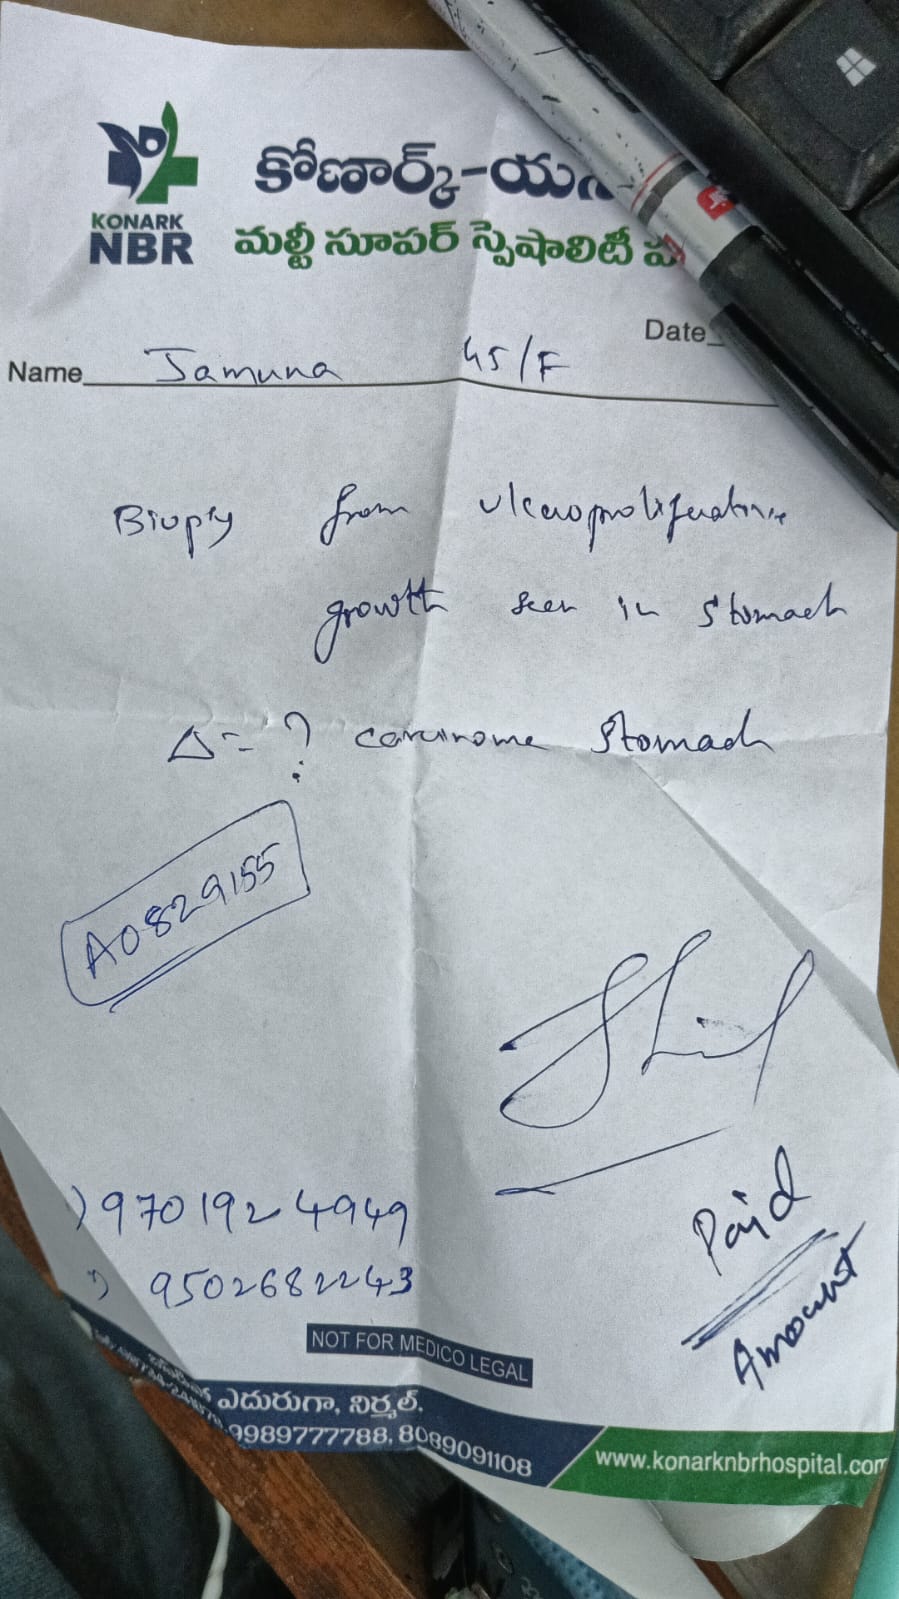 KONARK
NBR
కోణార్క్-యన
మల్టీ సూపర్ స్పెషాలిటీ
Date
Name Jamuna 45/F
Biopsy from ulceroproliferative
growth seen in stomach
Δ = ? carcinoma stomach
A0829155
) 9701924949
9502682243
Paid
Amount
NOT FOR MEDICO LEGAL
ఎదురుగా, నిర్మల్.
9989777788, 8089091108
www.konarknbrhospital.com